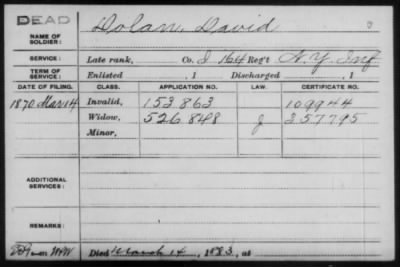 DEAD
Dolan, David
NAME OF SOLDIER:
SERVICE: Late rank, Co. I 164 Reg't N.Y. Inf
TERM OF SERVICE: Enlisted , 1 Discharged , 1
DATE OF FILING. CLASS. APPLICATION NO. LAW. CERTIFICATE NO.
1870 Mar 14 Invalid, 153863 109944
Widow, 526848 J 257795
Minor,
ADDITIONAL SERVICES:
REMARKS:
Died March 14, 1883, at